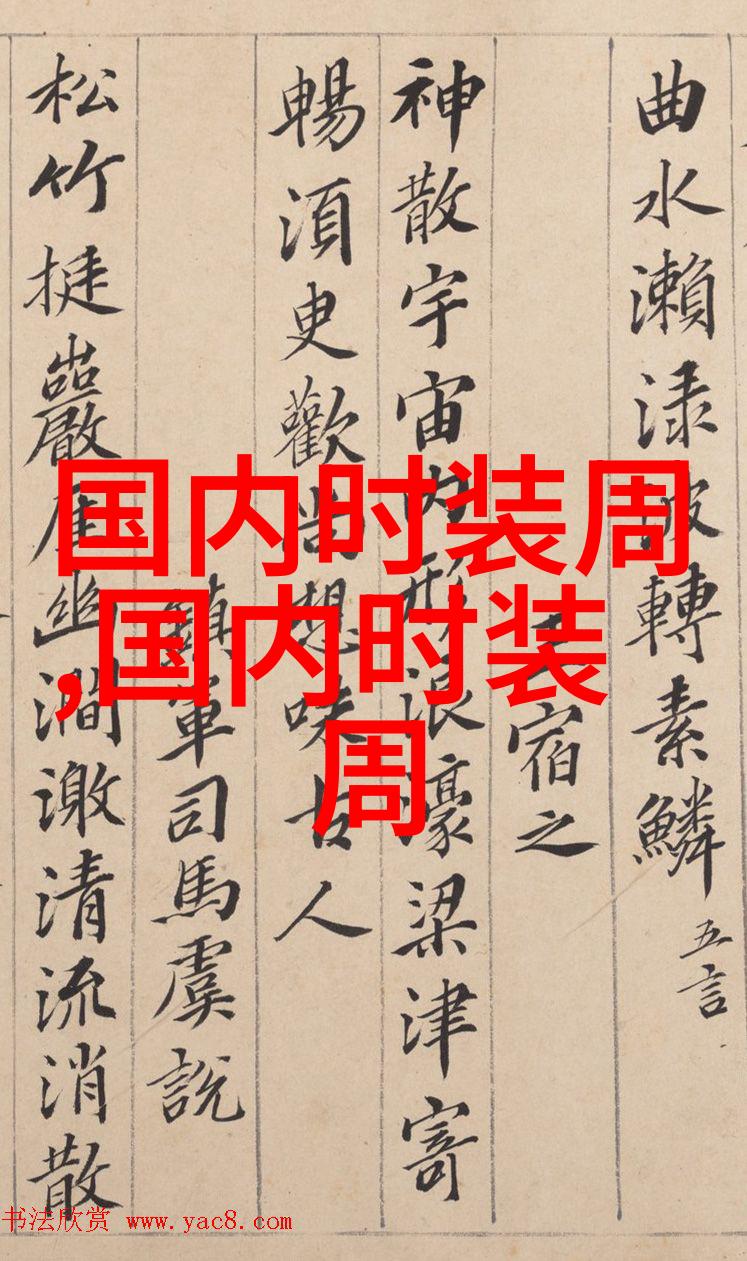 曲水瀨渌波轉素鱗 五言
宿之
神散宇宙内形浪濠梁津寄
暢須臾歡尚想味古人
鎮軍司馬虞說
松竹挺巖崖幽澗激清流消散
国内时装周
,国内时装
周
书法欣赏 www.yac8.com